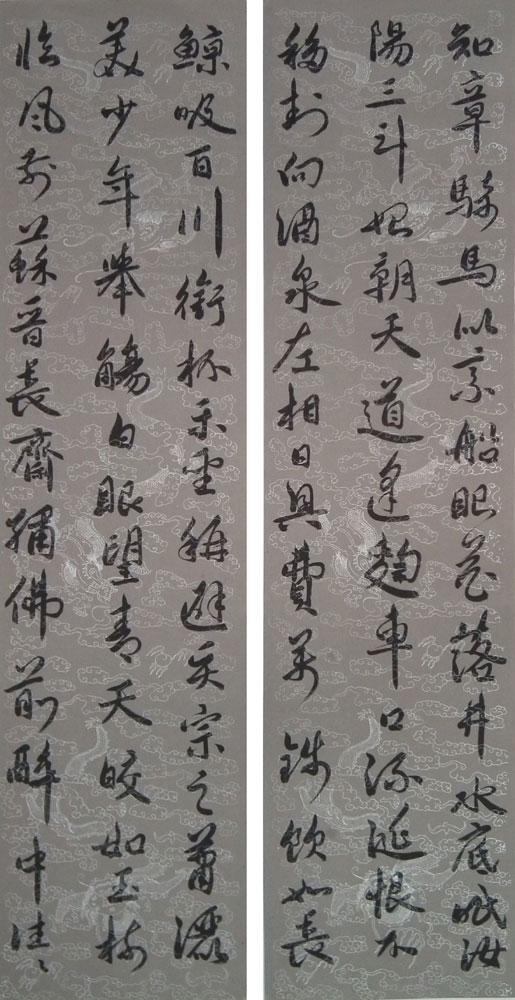 知章騎馬似乘船眼花落井水底眠汝
陽三斗始朝天道逢麹車口流涎恨不
移封向酒泉左相日興費萬錢飲如長
鯨吸百川銜杯樂聖稱避賢宗之蕭灑
美少年舉觴白眼望青天皎如玉樹
臨風前蘇晉長齋繡佛前醉中往々